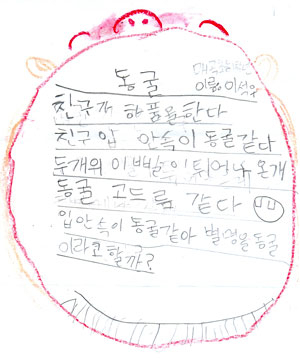 동굴
이름 이석우
친구가 하품을 한다
친구 입 안속이 동굴 같다
두개위 이빨이 튀어나 온게
동굴 고드름 같다
입안 속이 동굴같아 별명을 동굴
이라고 할까?